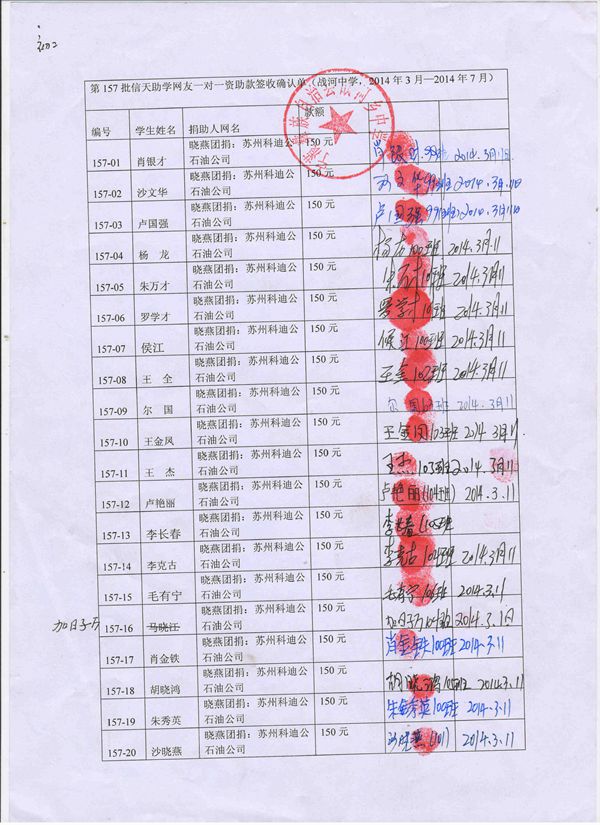 初二
第157批信天助学网友一对一资助款签收确认单(战河中学，2014年3月—2014年7月)
编号 学生姓名 捐助人网名 款额
157-01 肖银才 晓燕团捐：苏州科迪公石油公司 150元 99班 2014.3月11日
157-02 沙文华 晓燕团捐：苏州科迪公石油公司 150元 沙文华 99班 2014.3月11日
157-03 卢国强 晓燕团捐：苏州科迪公石油公司 150元 卢国强 99班 2014.3月11日
157-04 杨 龙 晓燕团捐：苏州科迪公石油公司 150元 杨龙 100班 2014.3月11
157-05 朱万才 晓燕团捐：苏州科迪公石油公司 150元 朱万才 2014.3月11
157-06 罗学才 晓燕团捐：苏州科迪公石油公司 150元 罗学才 2014.3月11
157-07 侯江 晓燕团捐：苏州科迪公石油公司 150元 侯江 100班 2014.3月11
157-08 王 全 晓燕团捐：苏州科迪公石油公司 150元 王全 102班 2014.3月11
157-09 尔 国 晓燕团捐：苏州科迪公石油公司 150元 尔国 103班 2014.3月11
157-10 王金凤 晓燕团捐：苏州科迪公石油公司 150元 王金凤 103班 2014.3月11
157-11 王 杰 晓燕团捐：苏州科迪公石油公司 150元 王杰 103班 2014.3月11
157-12 卢艳丽 晓燕团捐：苏州科迪公石油公司 150元 卢艳丽(104班) 2014.3.11
157-13 李长春 晓燕团捐：苏州科迪公石油公司 150元 李长春
157-14 李克古 晓燕团捐：苏州科迪公石油公司 150元 李克古 104班 2014.3月11
157-15 毛有宁 晓燕团捐：苏州科迪公石油公司 150元 毛有宁 2014.3.11
加日子万 157-16 马晓江 晓燕团捐：苏州科迪公石油公司 150元 加日子万 104班 2014.3.11
157-17 肖金铁 晓燕团捐：苏州科迪公石油公司 150元 肖金铁 100班 2014.3.11
157-18 胡晓鸿 晓燕团捐：苏州科迪公石油公司 150元 胡晓鸿 2014.3.11
157-19 朱秀英 晓燕团捐：苏州科迪公石油公司 150元 100班 2014.3.11
157-20 沙晓燕 晓燕团捐：苏州科迪公石油公司 150元 沙晓燕 (101) 2014.3.11